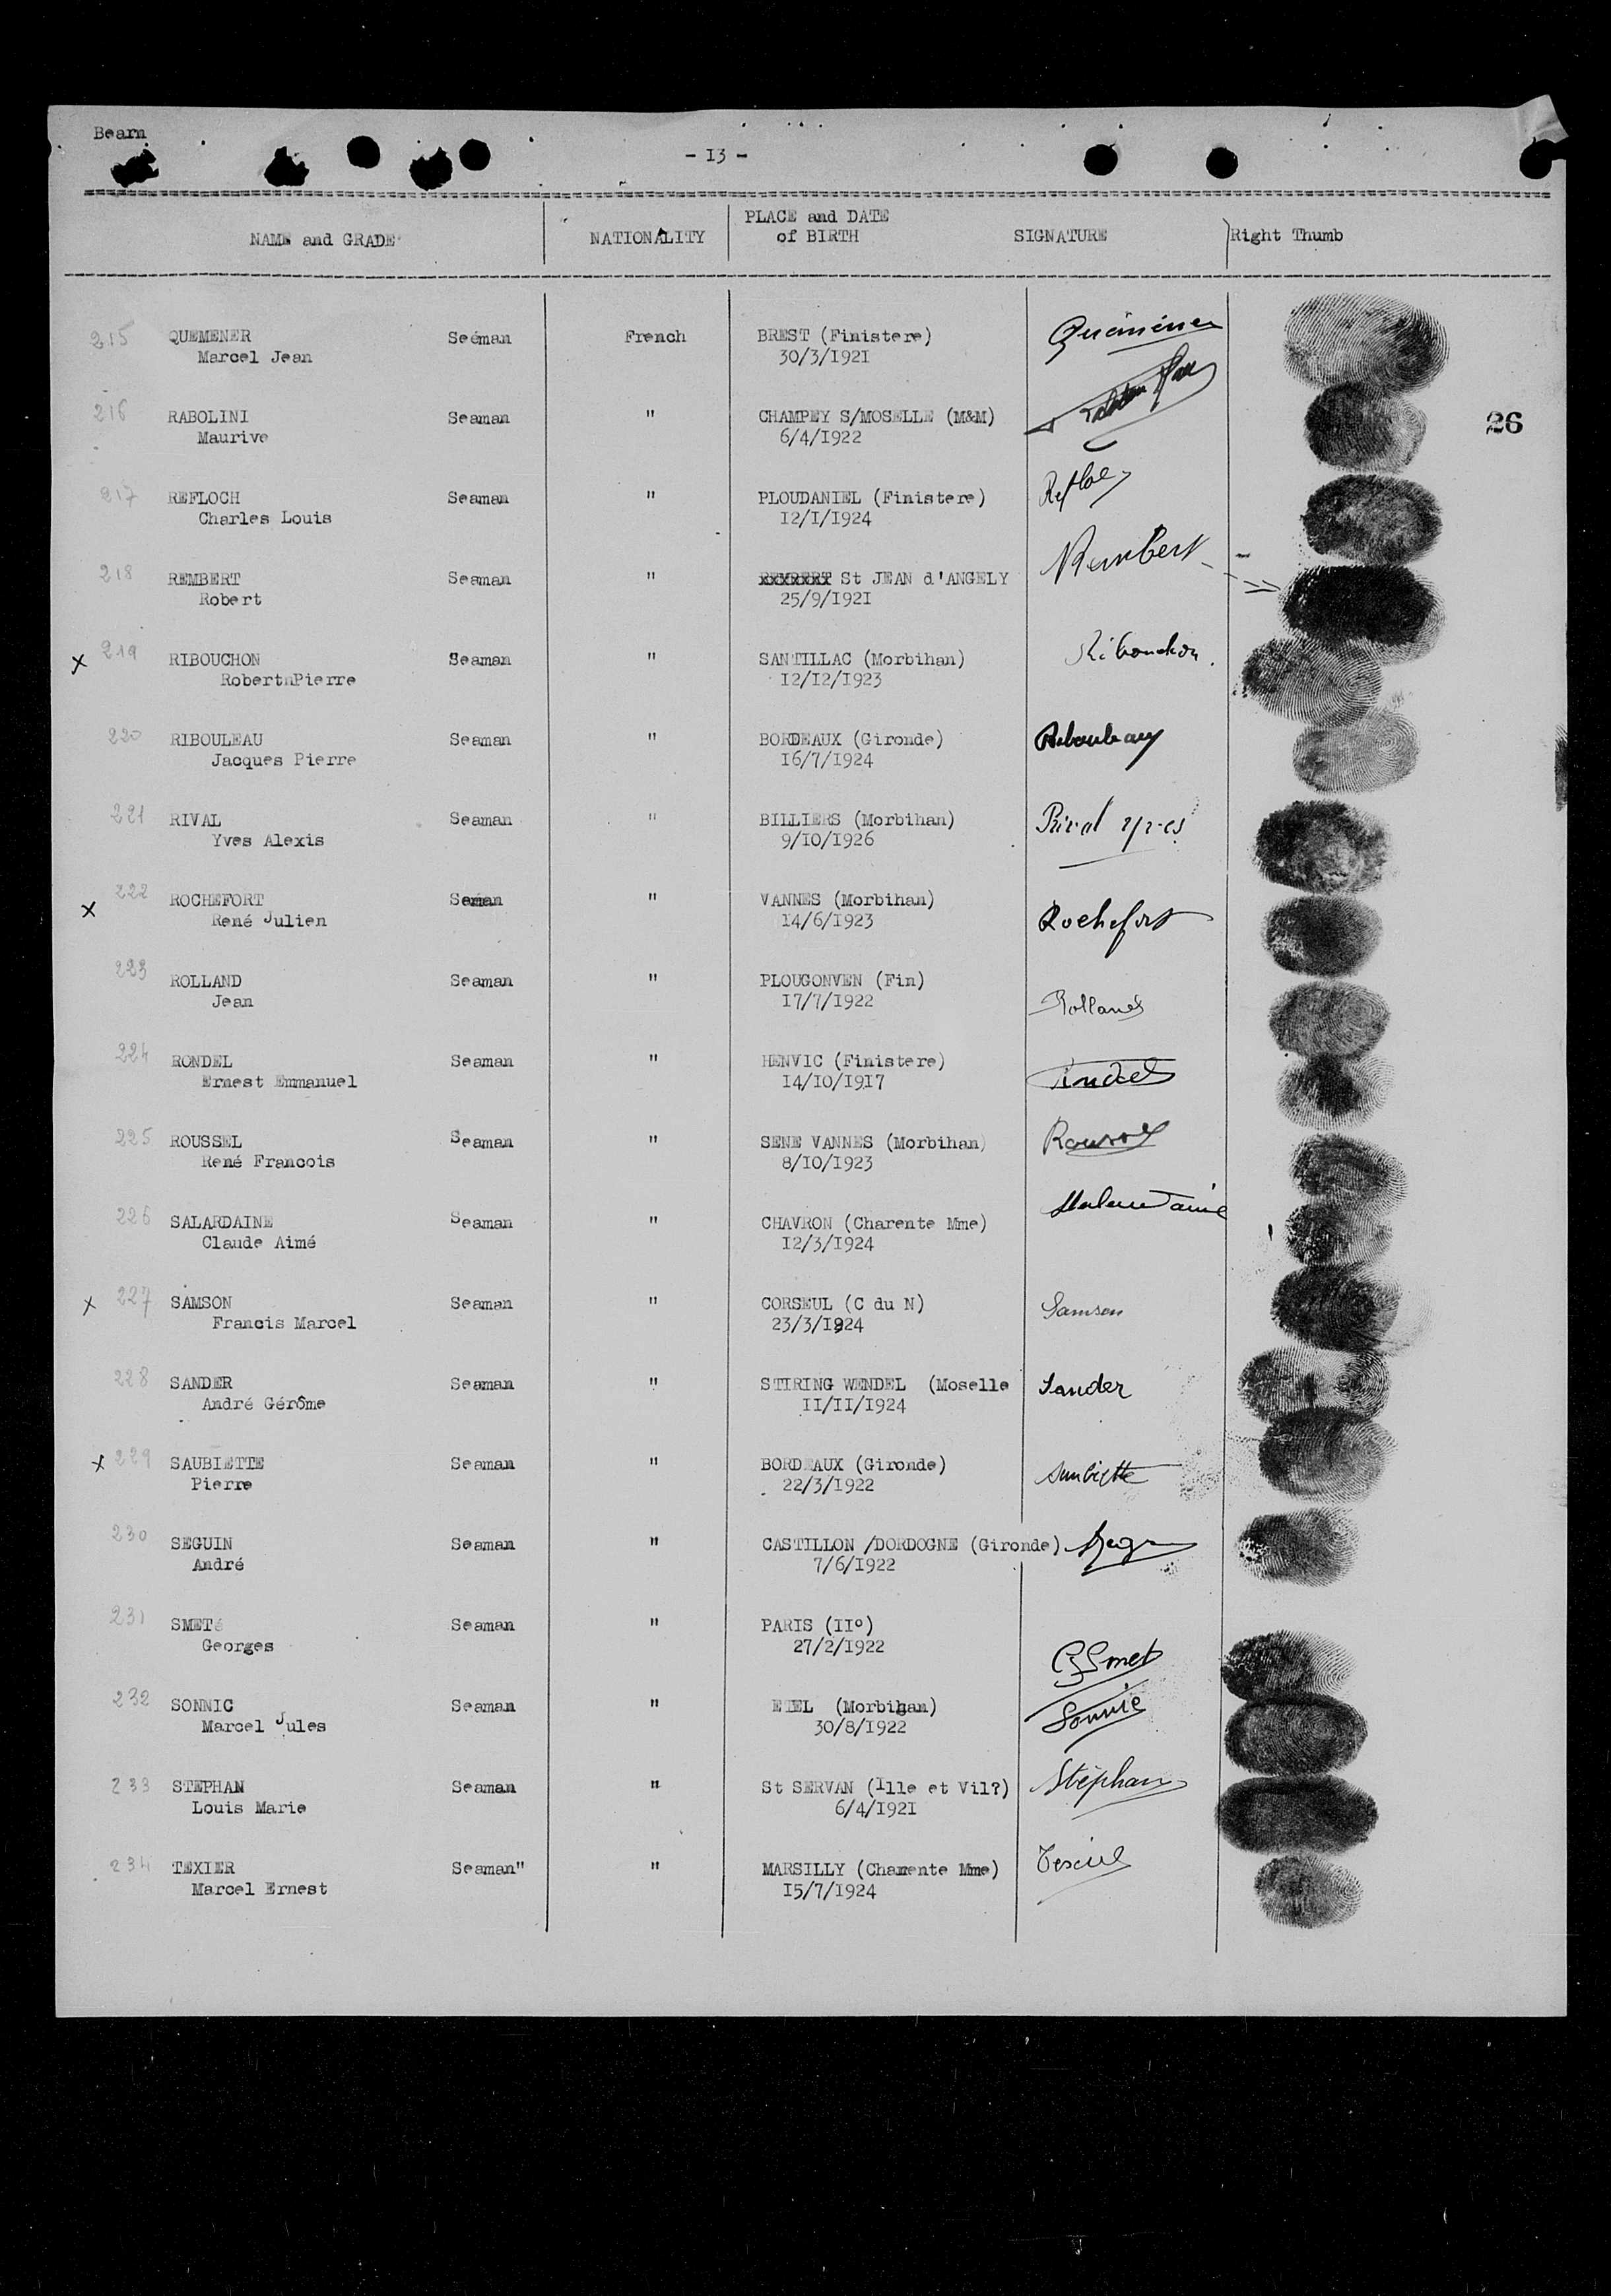 Bearn
- I3 -
NAME and GRADE NATIONALITY PLACE and DATE of BIRTH SIGNATURE Right Thumb
26
215 QUEMENER Seéman French BREST (Finistere) Quéméner
Marcel Jean 30/3/I92I
216 RABOLINI Seaman " CHAMPEY S/MOSELLE (M&M)
Maurive 6/4/I922
217 REFLOCH Seaman " PLOUDANIEL (Finistere)
Charles Louis I2/I/I924
218 REMBERT Seaman " St JEAN d'ANGELY Rembert
Robert 25/9/I92I
x 219 RIBOUCHON Seaman " SANTILLAC (Morbihan) Ribouchon
Robert Pierre I2/I2/I923
220 RIBOULEAU Seaman " BORDEAUX (Gironde) Ribouleau
Jacques Pierre I6/7/I924
221 RIVAL Seaman " BILLIERS (Morbihan) Rival Yves
Yves Alexis 9/IO/I926
x 222 ROCHEFORT Seaman " VANNES (Morbihan) Rochefort
René Julien I4/6/I923
223 ROLLAND Seaman " PLOUGONVEN (Fin) Rolland
Jean I7/7/I922
224 RONDEL Seaman " HENVIC (Finistere) Rondel
Ernest Emmanuel I4/IO/I9I7
225 ROUSSEL Seaman " SENE VANNES (Morbihan) Roussel
René Francois 8/IO/I923
226 SALARDAINE Seaman " CHAVRON (Charente Mme)
Claude Aimé I2/3/I924
x 227 SAMSON Seaman " CORSEUL (C du N) Samson
Francis Marcel 23/3/I924
228 SANDER Seaman " STIRING WENDEL (Moselle Sander
André Gérôme II/II/I924
x 229 SAUBIETTE Seaman " BORDEAUX (Gironde) Saubiette
Pierre 22/3/I922
230 SEGUIN Seaman " CASTILLON /DORDOGNE (Gironde)
André 7/6/I922
231 SMETé Seaman " PARIS (IIº) G Smet
Georges 27/2/I922
232 SONNIC Seaman " ETEL (Morbigan) Sonnic
Marcel Jules 30/8/I922
233 STEPHAN Seaman " St SERVAN (Ille et Vil?) Stéphan
Louis Marie 6/4/I92I
234 TEXIER Seaman" " MARSILLY (Charente Mme) Texier
Marcel Ernest I5/7/I924